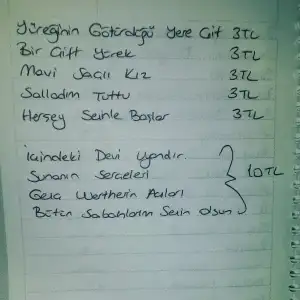 Yüreğinin Götürdüğü Yere Git 3TL
Bir Çift Yürek 3TL
Mavi Saçlı Kız 3TL
Salladım Tuttu 3TL
Herşey Seninle Başlar 3TL
İçindeki Devi Uyandır.
Sunanın Serçeleri
Genç Wertherin Acıları 10TL
Bütün Sabahlarım Senin Olsun